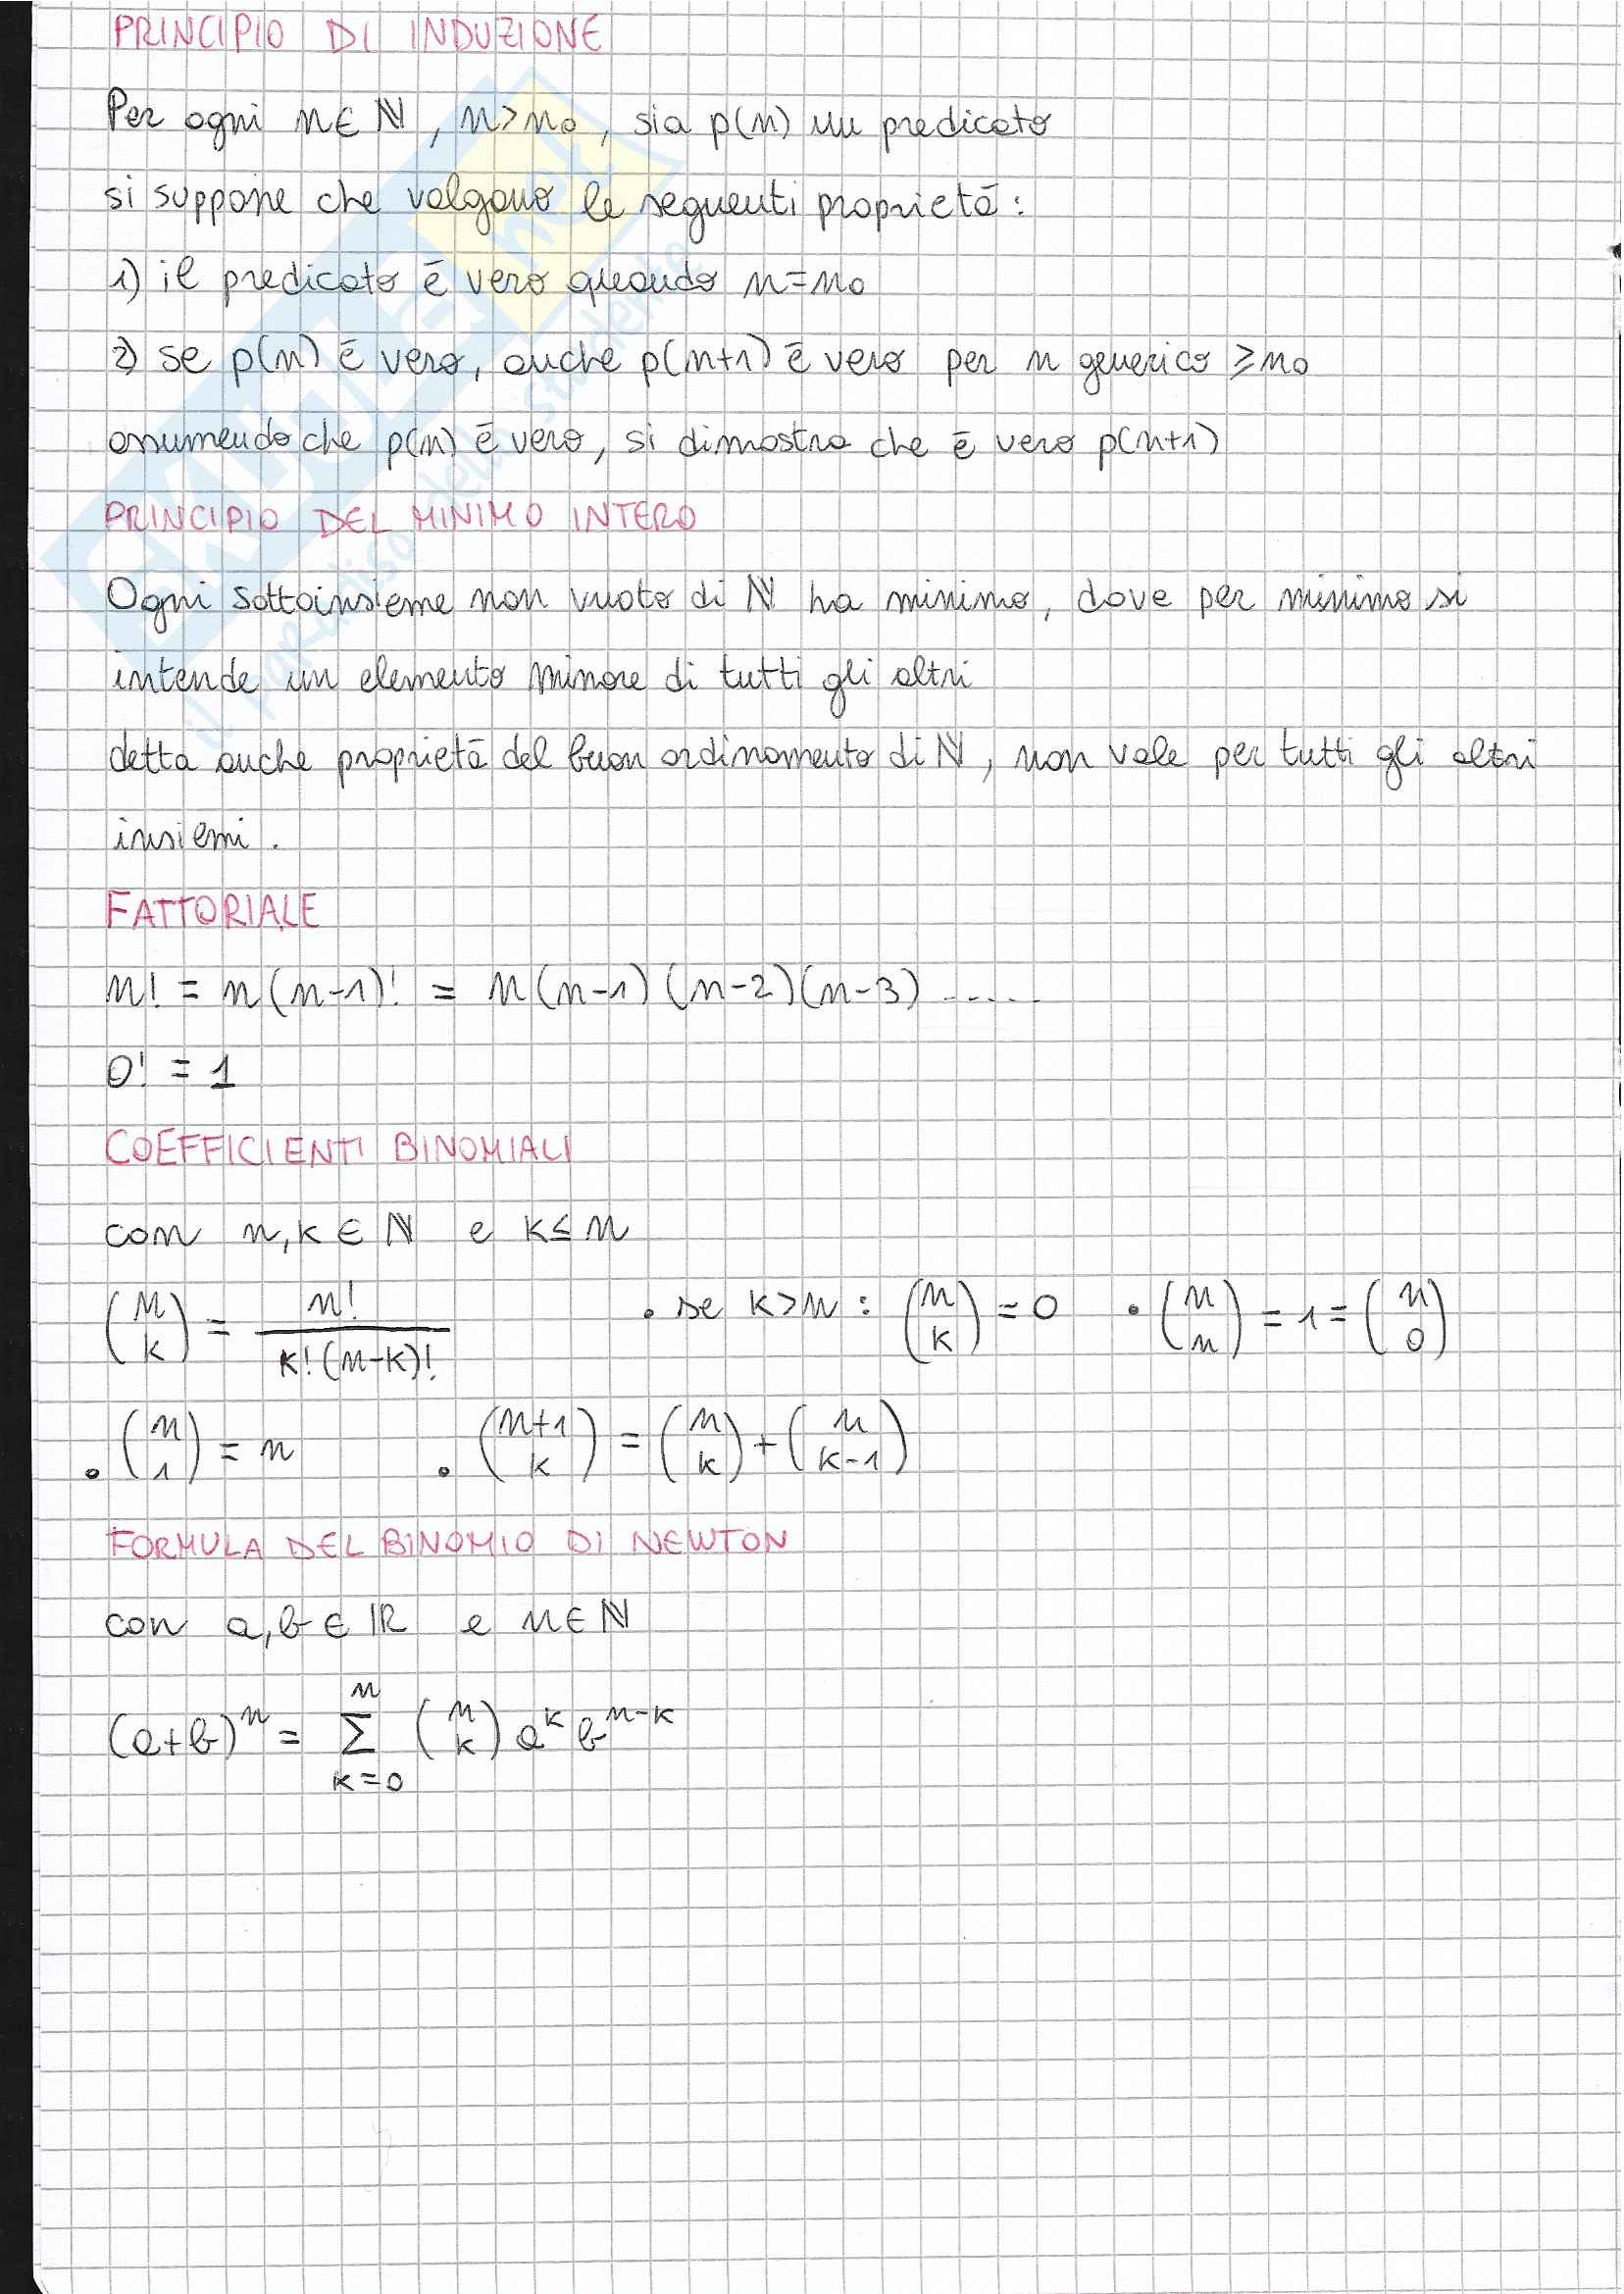 PRINCIPIO DI INDUZIONE
Per ogni n∈ℕ, n>n₀, sia p(n) un predicato
si suppone che valgano le seguenti proprietā:
1) il predicato ē vero quando n=n₀
2) se p(n) ē vero, anche p(n+1) ē vero per n generico ≥n₀
assumendo che p(n) ē vero, si dimostra che ē vero p(n+1)
PRINCIPIO DEL MINIMO INTERO
Ogni sottoinsieme non vuoto di ℕ ha minimo, dove per minimo si
intende un elemento minore di tutti gli altri
detta anche proprietā del buon ordinamento di ℕ, non vale per tutti gli altri
insiemi.
FATTORIALE
n! = n(n-1)! = n(n-1)(n-2)(n-3).....
0! = 1
COEFFICIENTI BINOMIALI
con n,k ∈ ℕ e k≤n
(n k) = n! / k!(n-k)! • se k>n: (n k) = 0 • (n n) = 1 = (n 0)
• (n 1) = n • (n+1 k) = (n k) + (n k-1)
FORMULA DEL BINOMIO DI NEWTON
con a,b∈ℝ e n∈ℕ
(a+b)ⁿ = Σ_{k=0}^{n} (n k) a^k b^{n-k}
SKUOLA.net
il paradiso dello studente